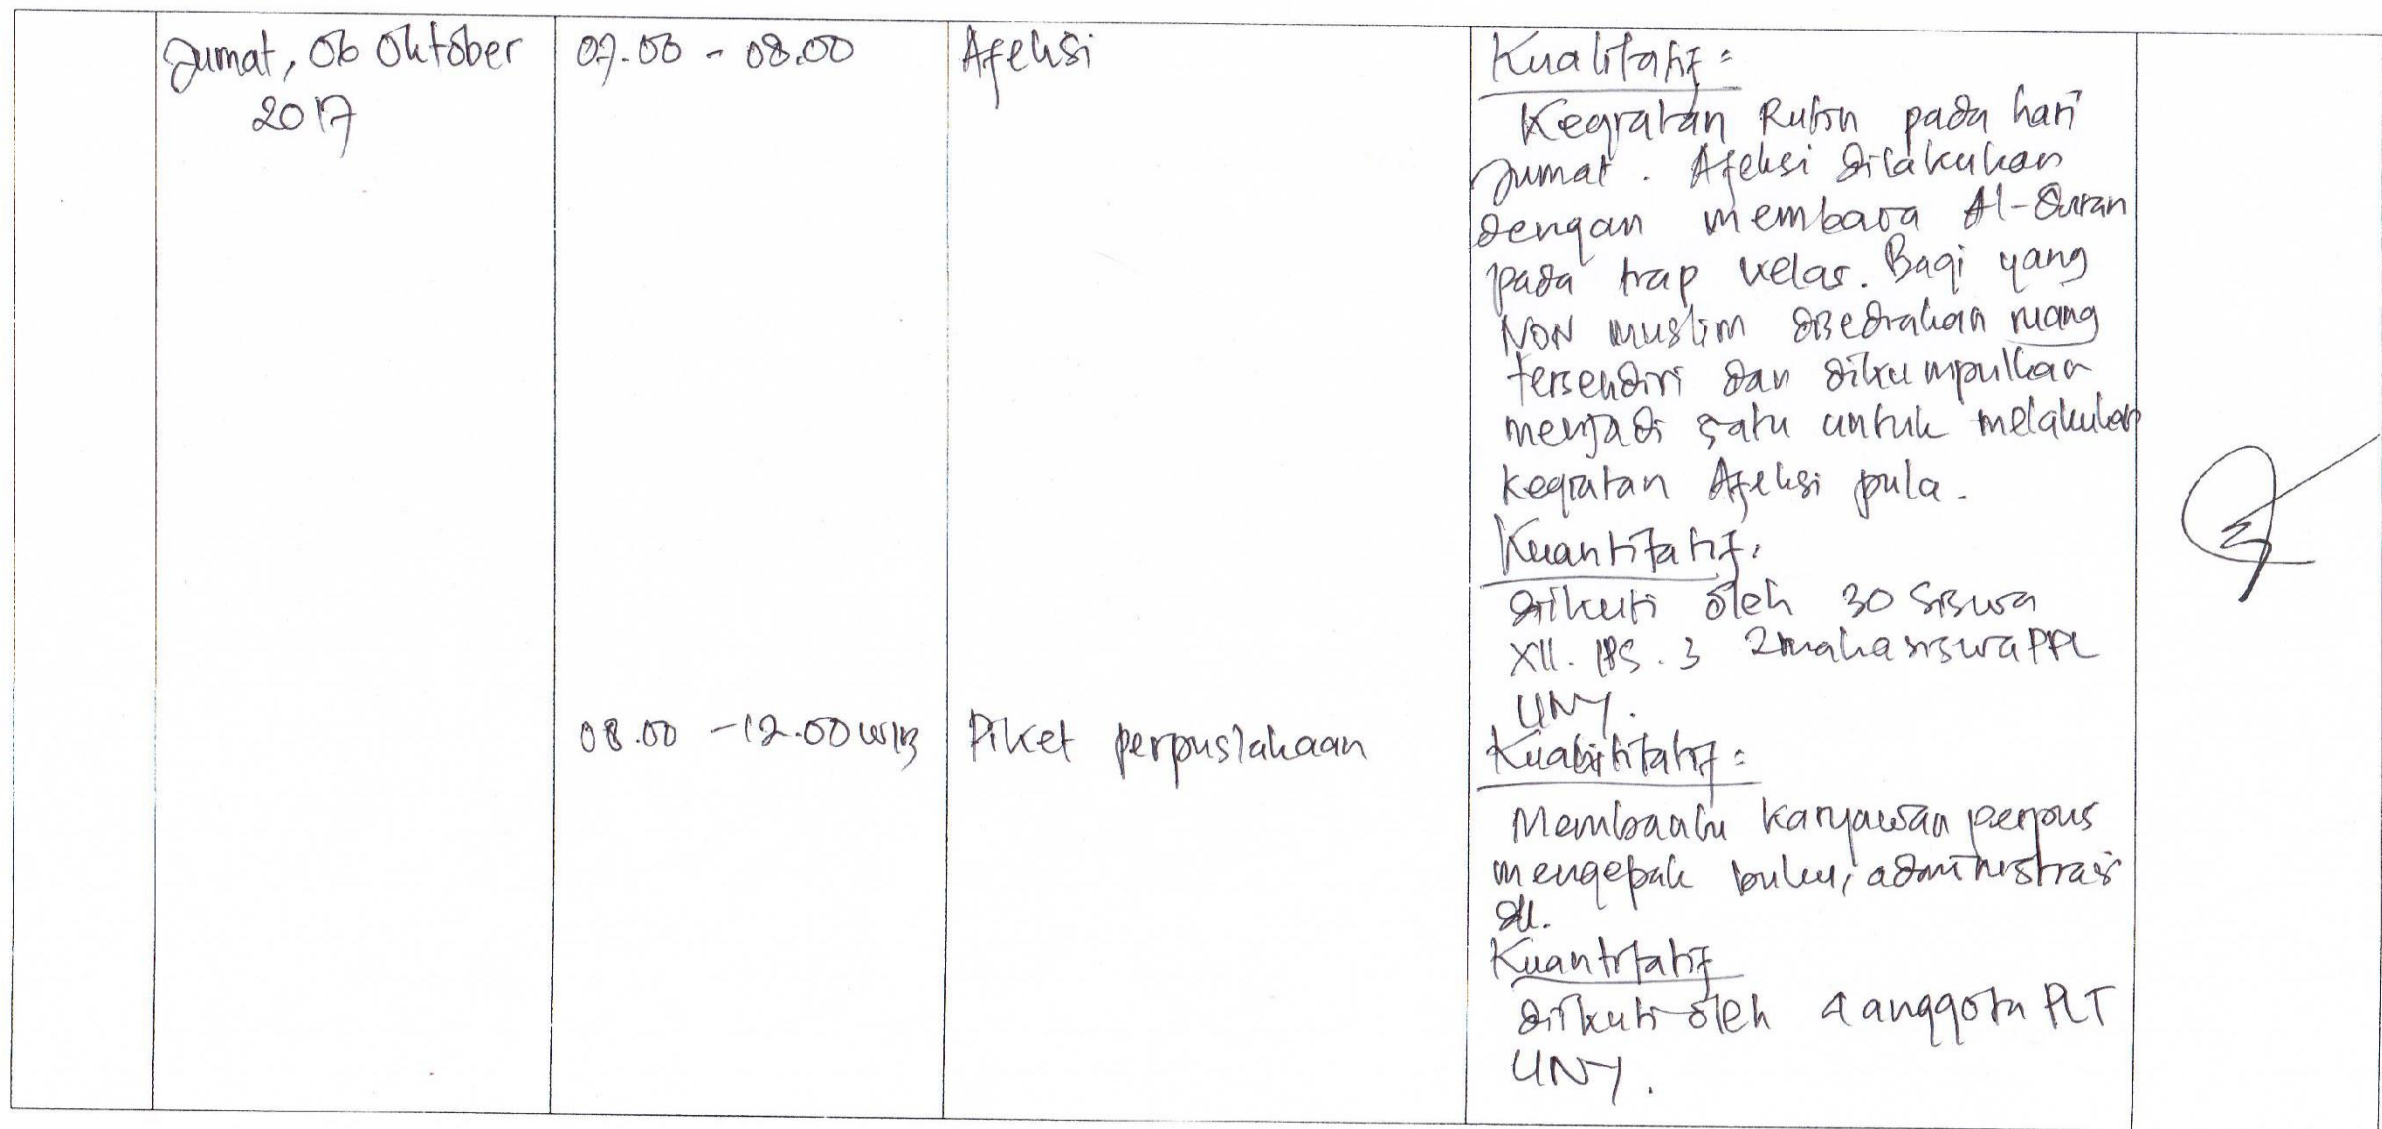 Jumat, 06 Oktober
2017
07.00 - 08.00
Afeksi
Kualitatif :
Kegiatan Rutin pada hari
Jumat. Afeksi dilakukan
dengan membaca Al-Quran
pada tiap kelas. Bagi yang
NON muslim disediakan ruang
tersendiri dan dikumpulkan
menjadi satu untuk melakukan
kegiatan Afeksi pula.
Kuantitatif :
diikuti oleh 30 siswa
XII. IPS. 3 2 mahasiswa PPL
UNY.
08.00 - 12.00 WIB
Piket perpustakaan
Membantu karyawan perpus
mengepak buku, administrasi
dll.
Kuantitatif
diikuti oleh 4 anggota PLT
UNY.